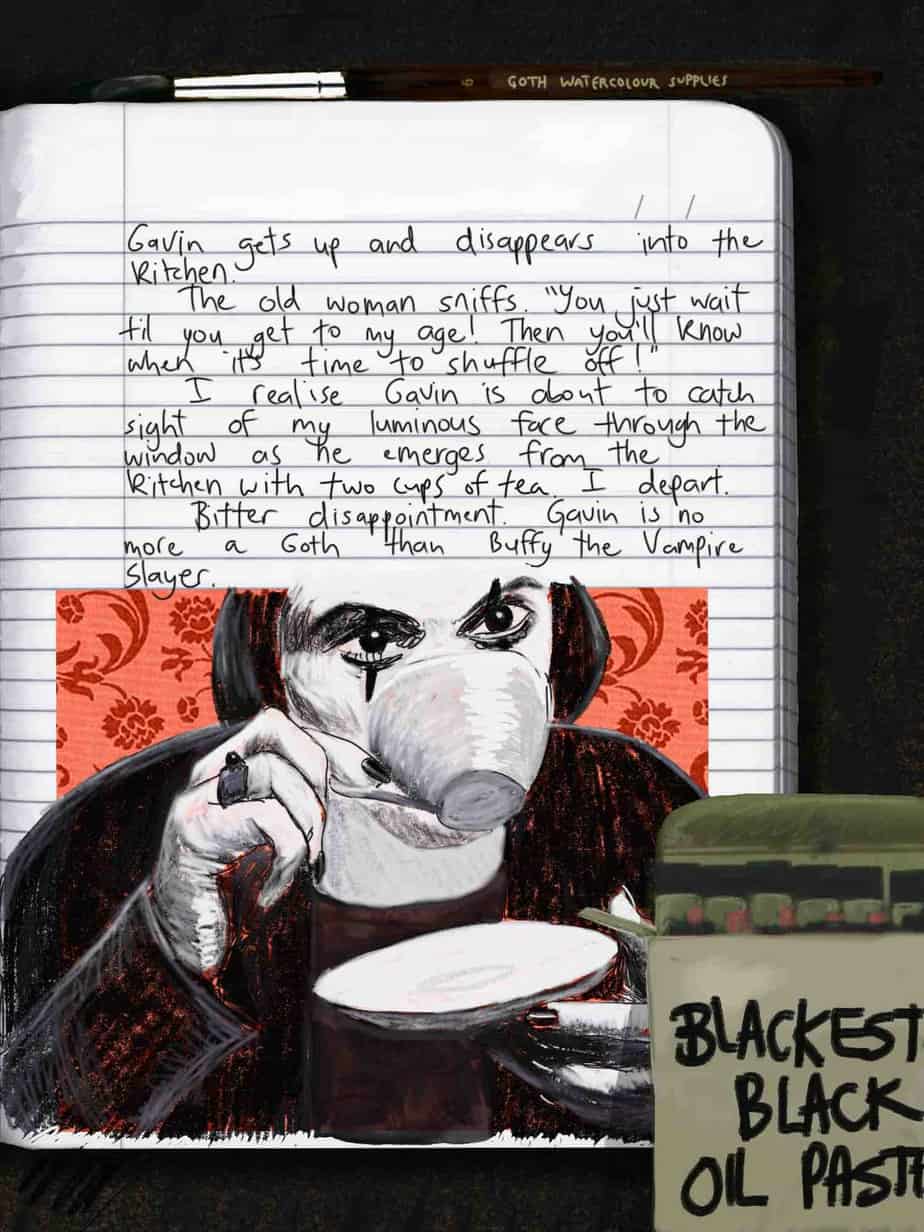 6 GOTH WATERCOLOUR SUPPLIES
Gavin gets up and disappears into the
kitchen.
The old woman sniffs. "You just wait
til you get to my age! Then you'll know
when it's time to shuffle off!"
I realise Gavin is about to catch
sight of my luminous face through the
window as he emerges from the
kitchen with two cups of tea. I depart.
Bitter disappointment. Gavin is no
more a Goth than Buffy the Vampire
Slayer.
BLACKEST
BLACK
OIL